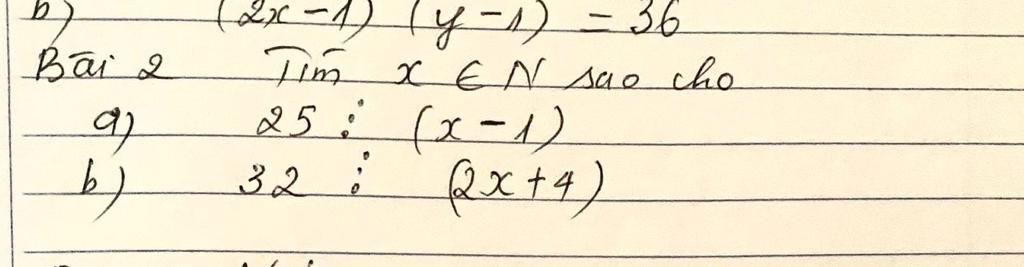 b) (2x-1) (y-1) = 36
Bài 2 Tìm x ∈ N sao cho
a) 25 ⋮ (x-1)
b) 32 ⋮ (2x+4)